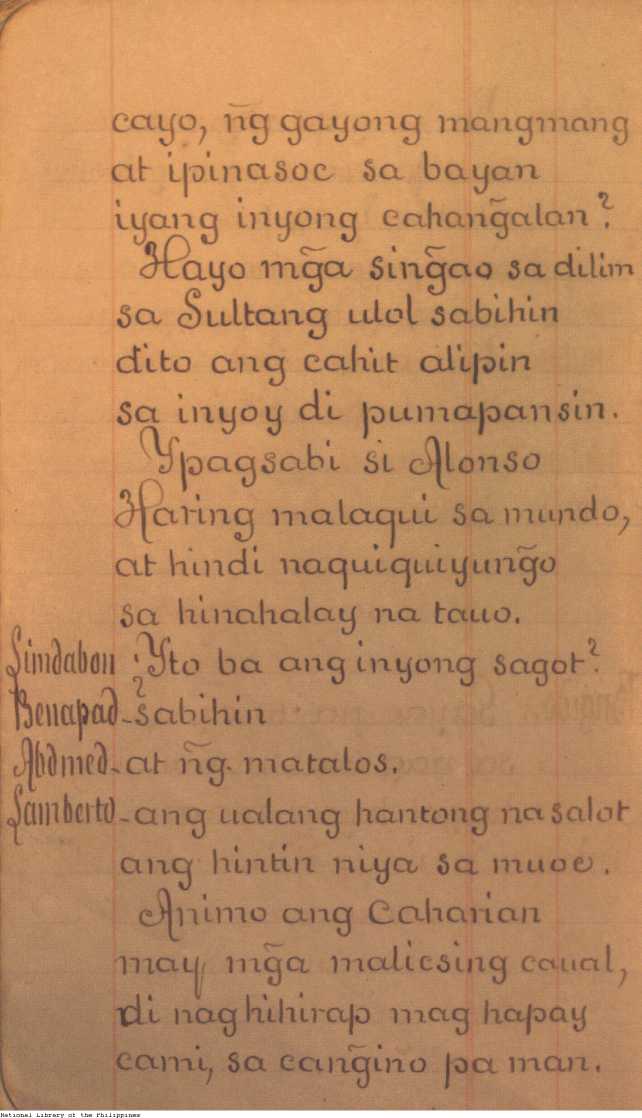 cayo, n̄g gayong mangmang
at ipinasoc sa bayan
iyang inyong cahang̃alan?
Hayo mg̃a sing̃ao sa dilim
sa Sultang ulol sabihin
dito ang cahit alipin
sa inyoy di pumapansin.
Ypagsabi si Alonso
Haring malaqui sa mundo,
at hindi naquiquiyung̃o
sa hinahalay na tauo.
Simdabon ¿Yto ba ang inyong sagot?
Benapad - sabihin
Abdmed - at n̄g matalos.
Lamberto - ang ualang hantong na salot
ang hintin niya sa muoc.
Animo ang Caharian
may mg̃a malicsing caual,
di naghihirap mag hapay
cami, sa cang̃ino pa man.
National Library of the Philippines